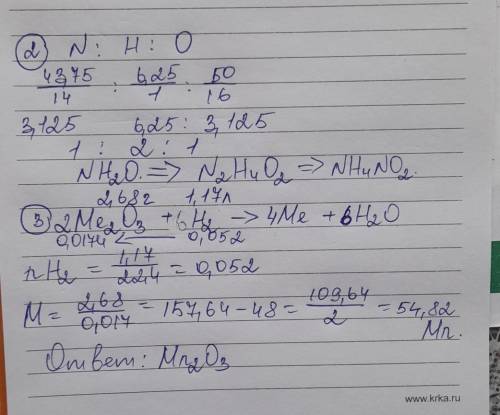 ② N : H : O
43,75/14 : 6,25/1 : 50/16
3,125 6,25 : 3,125
1 : 2 : 1
NH₂O ⇒ N₂H₄O₂ ⇒ NH₄NO₂.
2,68г 1,17л
③ 2Me₂O₃ + 6H₂ → 4Me + 6H₂O
0,0174 ← 0,052
nH₂ = 1,17/22,4 = 0,052
M = 2,68/0,017 = 157,64 - 48 = 109,64/2 = 54,82
Mn.
Ответ: Mn₂O₃
www.krka.ru